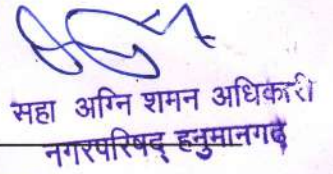 सहा अग्नि शमन अधिकारी
नगरपरिषद् हनुमानगढ़